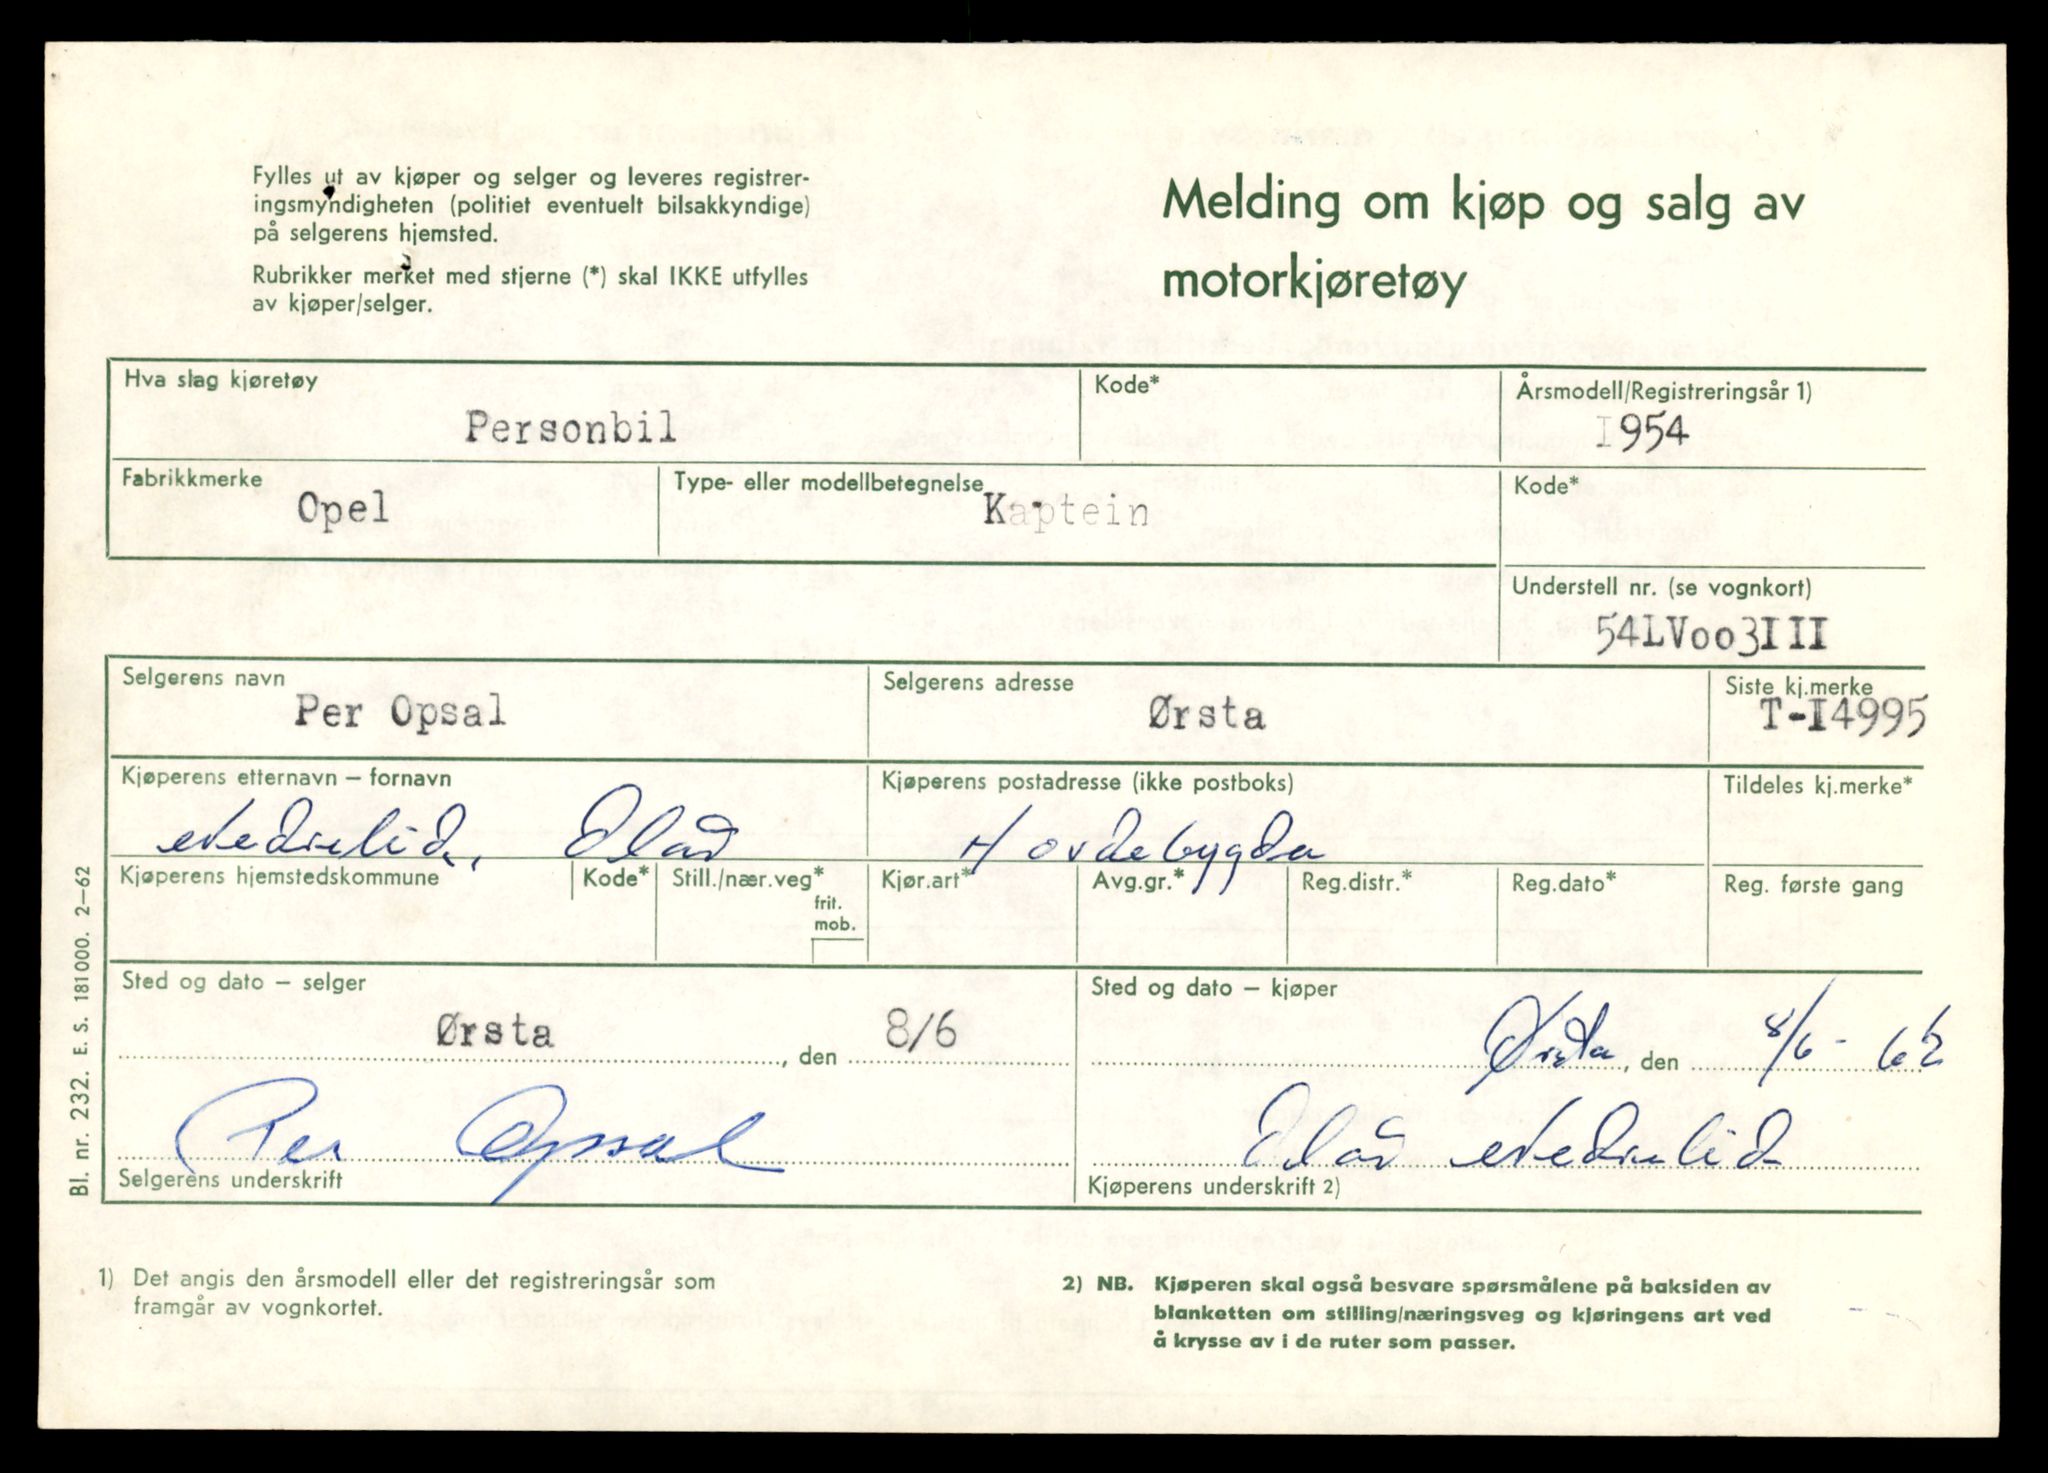 Fylles ut av kjøper og selger og leveres registrer-
ingsmyndigheten (politiet eventuelt bilsakkyndige)
på selgerens hjemsted.
Rubrikker merket med stjerne (*) skal IKKE utfylles
av kjøper/selger.
Melding om kjøp og salg av
motorkjøretøy
Hva slag kjøretøy
Personbil
Kode*
Årsmodell/Registreringsår 1)
I954
Fabrikkmerke
Opel
Type- eller modellbetegnelse
Kaptein
Kode*
Understell nr. (se vognkort)
54LVoo3III
Selgerens navn
Per Opsal
Selgerens adresse
Ørsta
Siste kj.merke
T-I4995
Kjøperens etternavn – fornavn
Nedrelid, Olav
Kjøperens postadresse (ikke postboks)
Hovdebygda
Tildeles kj.merke*
Kjøperens hjemstedskommune
Kode*
Still./nær.veg*
frit.
mob.
Kjør.art*
Avg.gr.*
Reg.distr.*
Reg.dato*
Reg. første gang
Sted og dato – selger
Ørsta, den 8/6
Per Opsal
Selgerens underskrift
Sted og dato – kjøper
Ørsta, den 8/6 - 62
Olav Nedrelid
Kjøperens underskrift 2)
Bl. nr. 232. E. S. 181000. 2–62
1) Det angis den årsmodell eller det registreringsår som
framgår av vognkortet.
2) NB. Kjøperen skal også besvare spørsmålene på baksiden av
blanketten om stilling/næringsveg og kjøringens art ved
å krysse av i de ruter som passer.